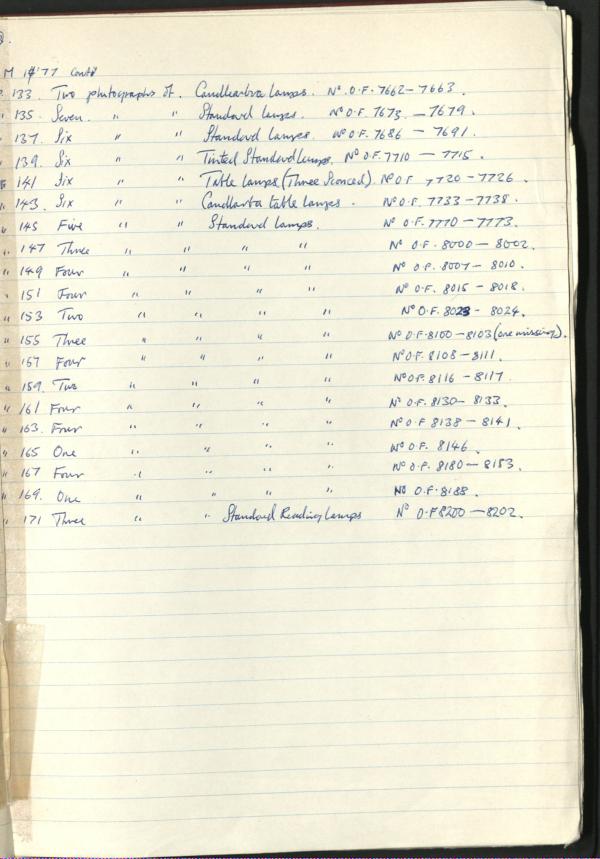 M 14'77 Contd
P. 133. Two photographs of. Candleabra lamps. Nº. O.F. 7662 – 7663.
" 135. Seven. " " Standard lamps. Nº O.F. 7673. – 7679.
" 137. Six " " Standard lamps. Nº O.F. 7686 – 7691.
" 139. Six " " Tinted Standard lamps, Nº O.F. 7710 – 7715.
141 Six " " Table lamps (Three Sconced). Nº O.F 7720 – 7726.
" 143. Six " " Candlarba table lamps. Nº O.F. 7733 – 7738.
" 145 Five " " Standard lamps. Nº O.F. 7770 – 7773.
" 147 Three " " " " Nº O.F. 8000 – 8002.
" 149 Four " " " " Nº O.F. 8007 – 8010.
" 151 Four " " " " Nº O.F. 8015 – 8018.
" 153 Two " " " " Nº O.F. 8023 – 8024.
" 155 Three " " " " Nº O.F. 8100 – 8103 (one missing).
" 157 Four " " " " Nº O.F. 8108 – 8111.
" 159. Two " " " " Nº O.F. 8116 – 8117
" 161 Four " " " " Nº O.F. 8130 – 8133.
" 163. Four " " " " Nº O.F 8138 – 8141.
" 165 One " " " " Nº O.F. 8146.
" 167 Four " " " " Nº O.F. 8180 – 8183.
" 169. One " " " " Nº O.F. 8188.
" 171 Three " " Standard Reading Lamps Nº O.F 8200 – 8202.